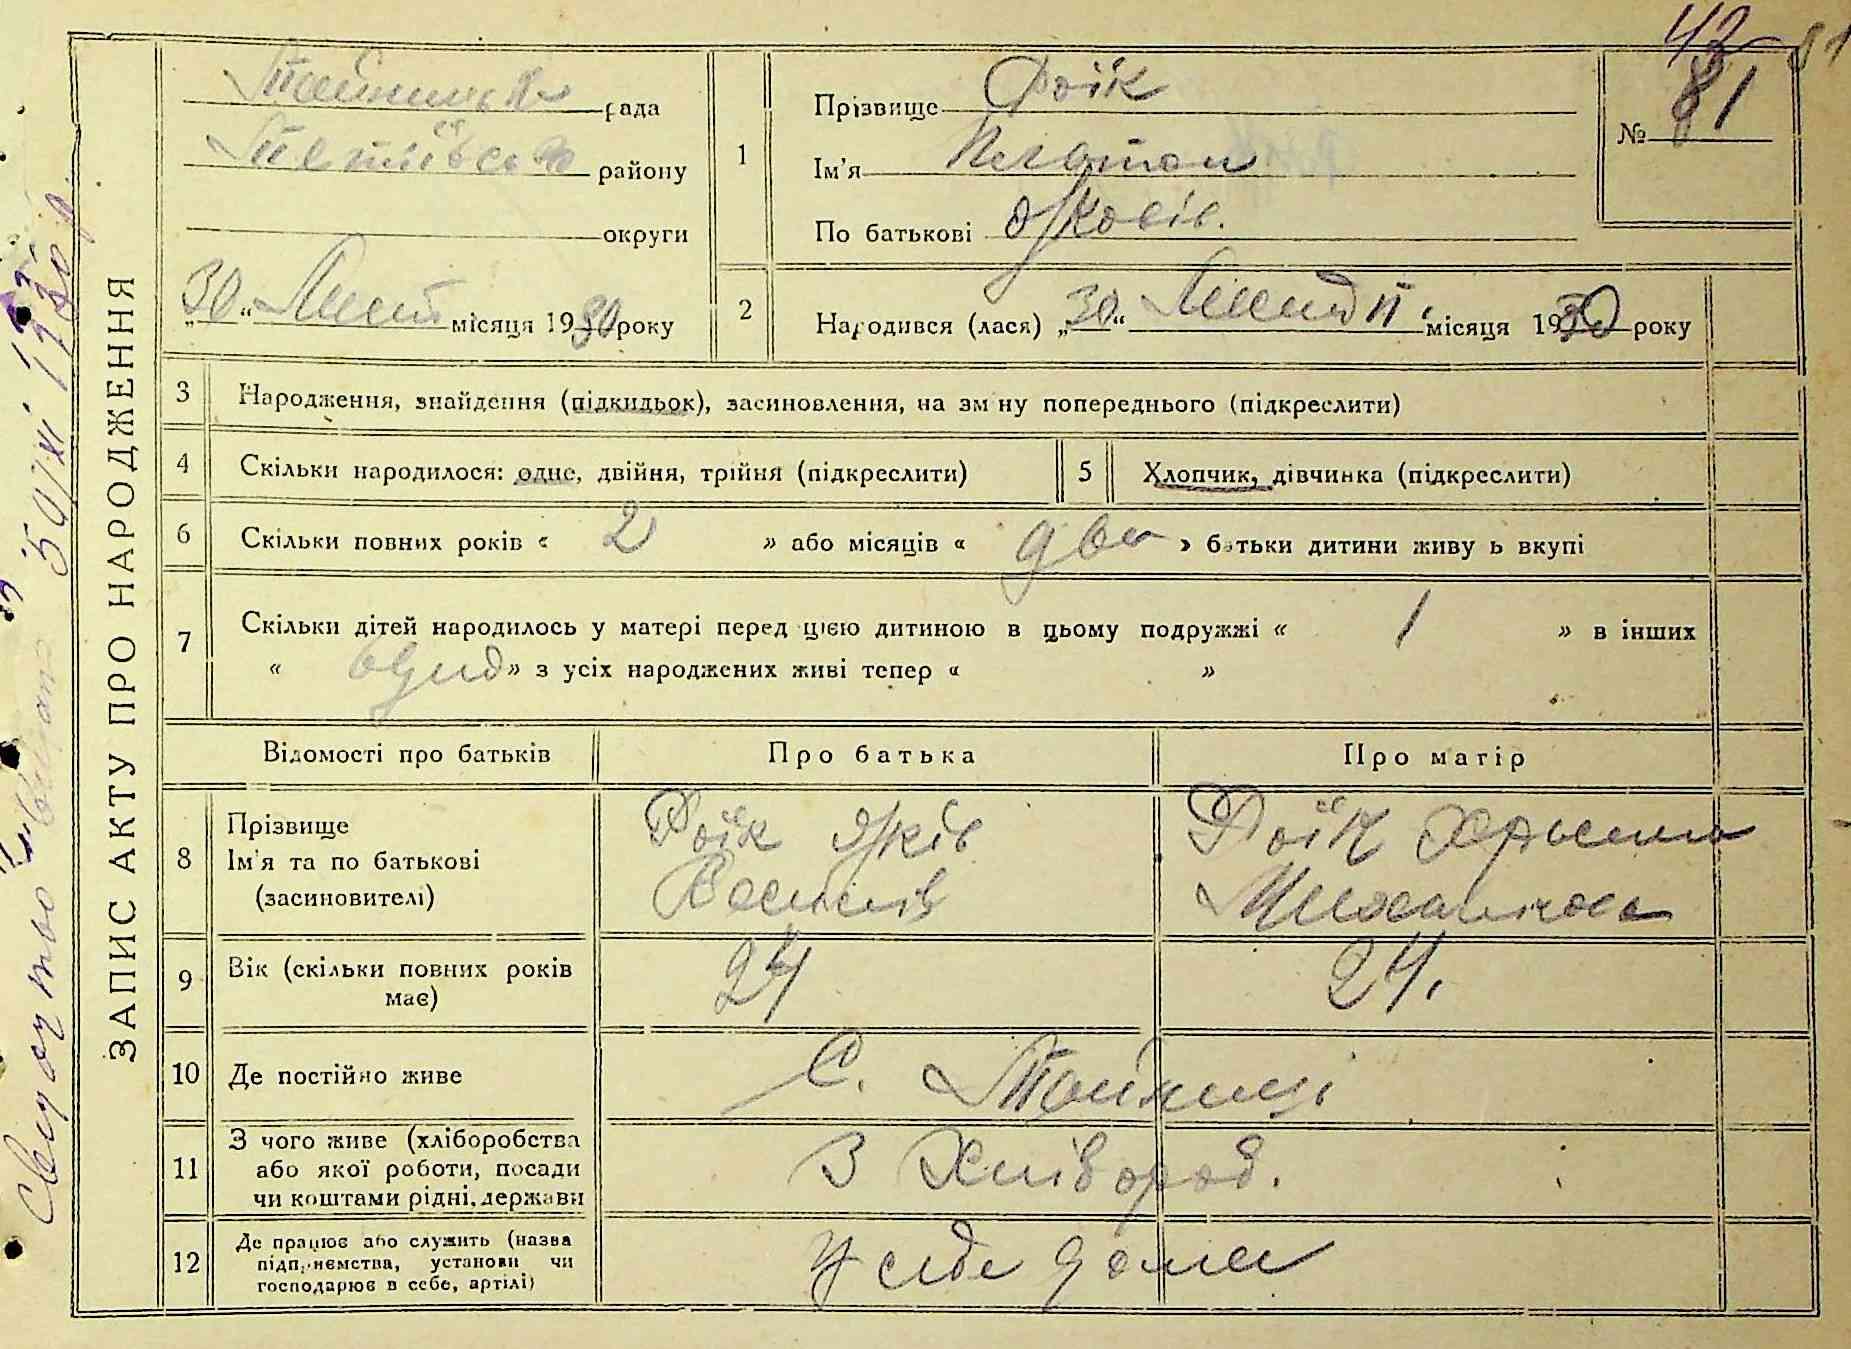 42 81
ЗАПИС АКТУ ПРО НАРОДЖЕННЯ
рада
району
округи
„30“ Лист місяця 1930 року
1
Прізвище Роїк
Ім'я Платон
По батькові Яковів.
№ 81
2
Народився (лася) „30“ Листоп. місяця 1930 року
3 Народження, знайдення (підкидьок), засиновлення, на зм ну попереднього (підкреслити)
4 Скільки народилося: одне, двійня, трійня (підкреслити)
5 Хлопчик, дівчинка (підкреслити)
6 Скільки повних років « 2 » або місяців « два » батьки дитини живу ь вкупі
7 Скільки дітей народилось у матері перед цією дитиною в цьому подружжі « 1 » в інших
« » з усіх народжених живі тепер « »
Відомості про батьків Про батька Про матір
8 Прізвище
Ім'я та по батькові
(засиновителі)
Роїк Яків
Василів
Роїк
Михайлівна
9 Вік (скільки повних років
має)
24
24.
10 Де постійно живе
С. Тайниці
11 З чого живе (хліборобства
або якої роботи, посади
чи коштами рідні, держави
З Хлівороб.
12 Де працює або служить (назва
підприємства, установи чи
господарює в себе, артілі)
У себе дома